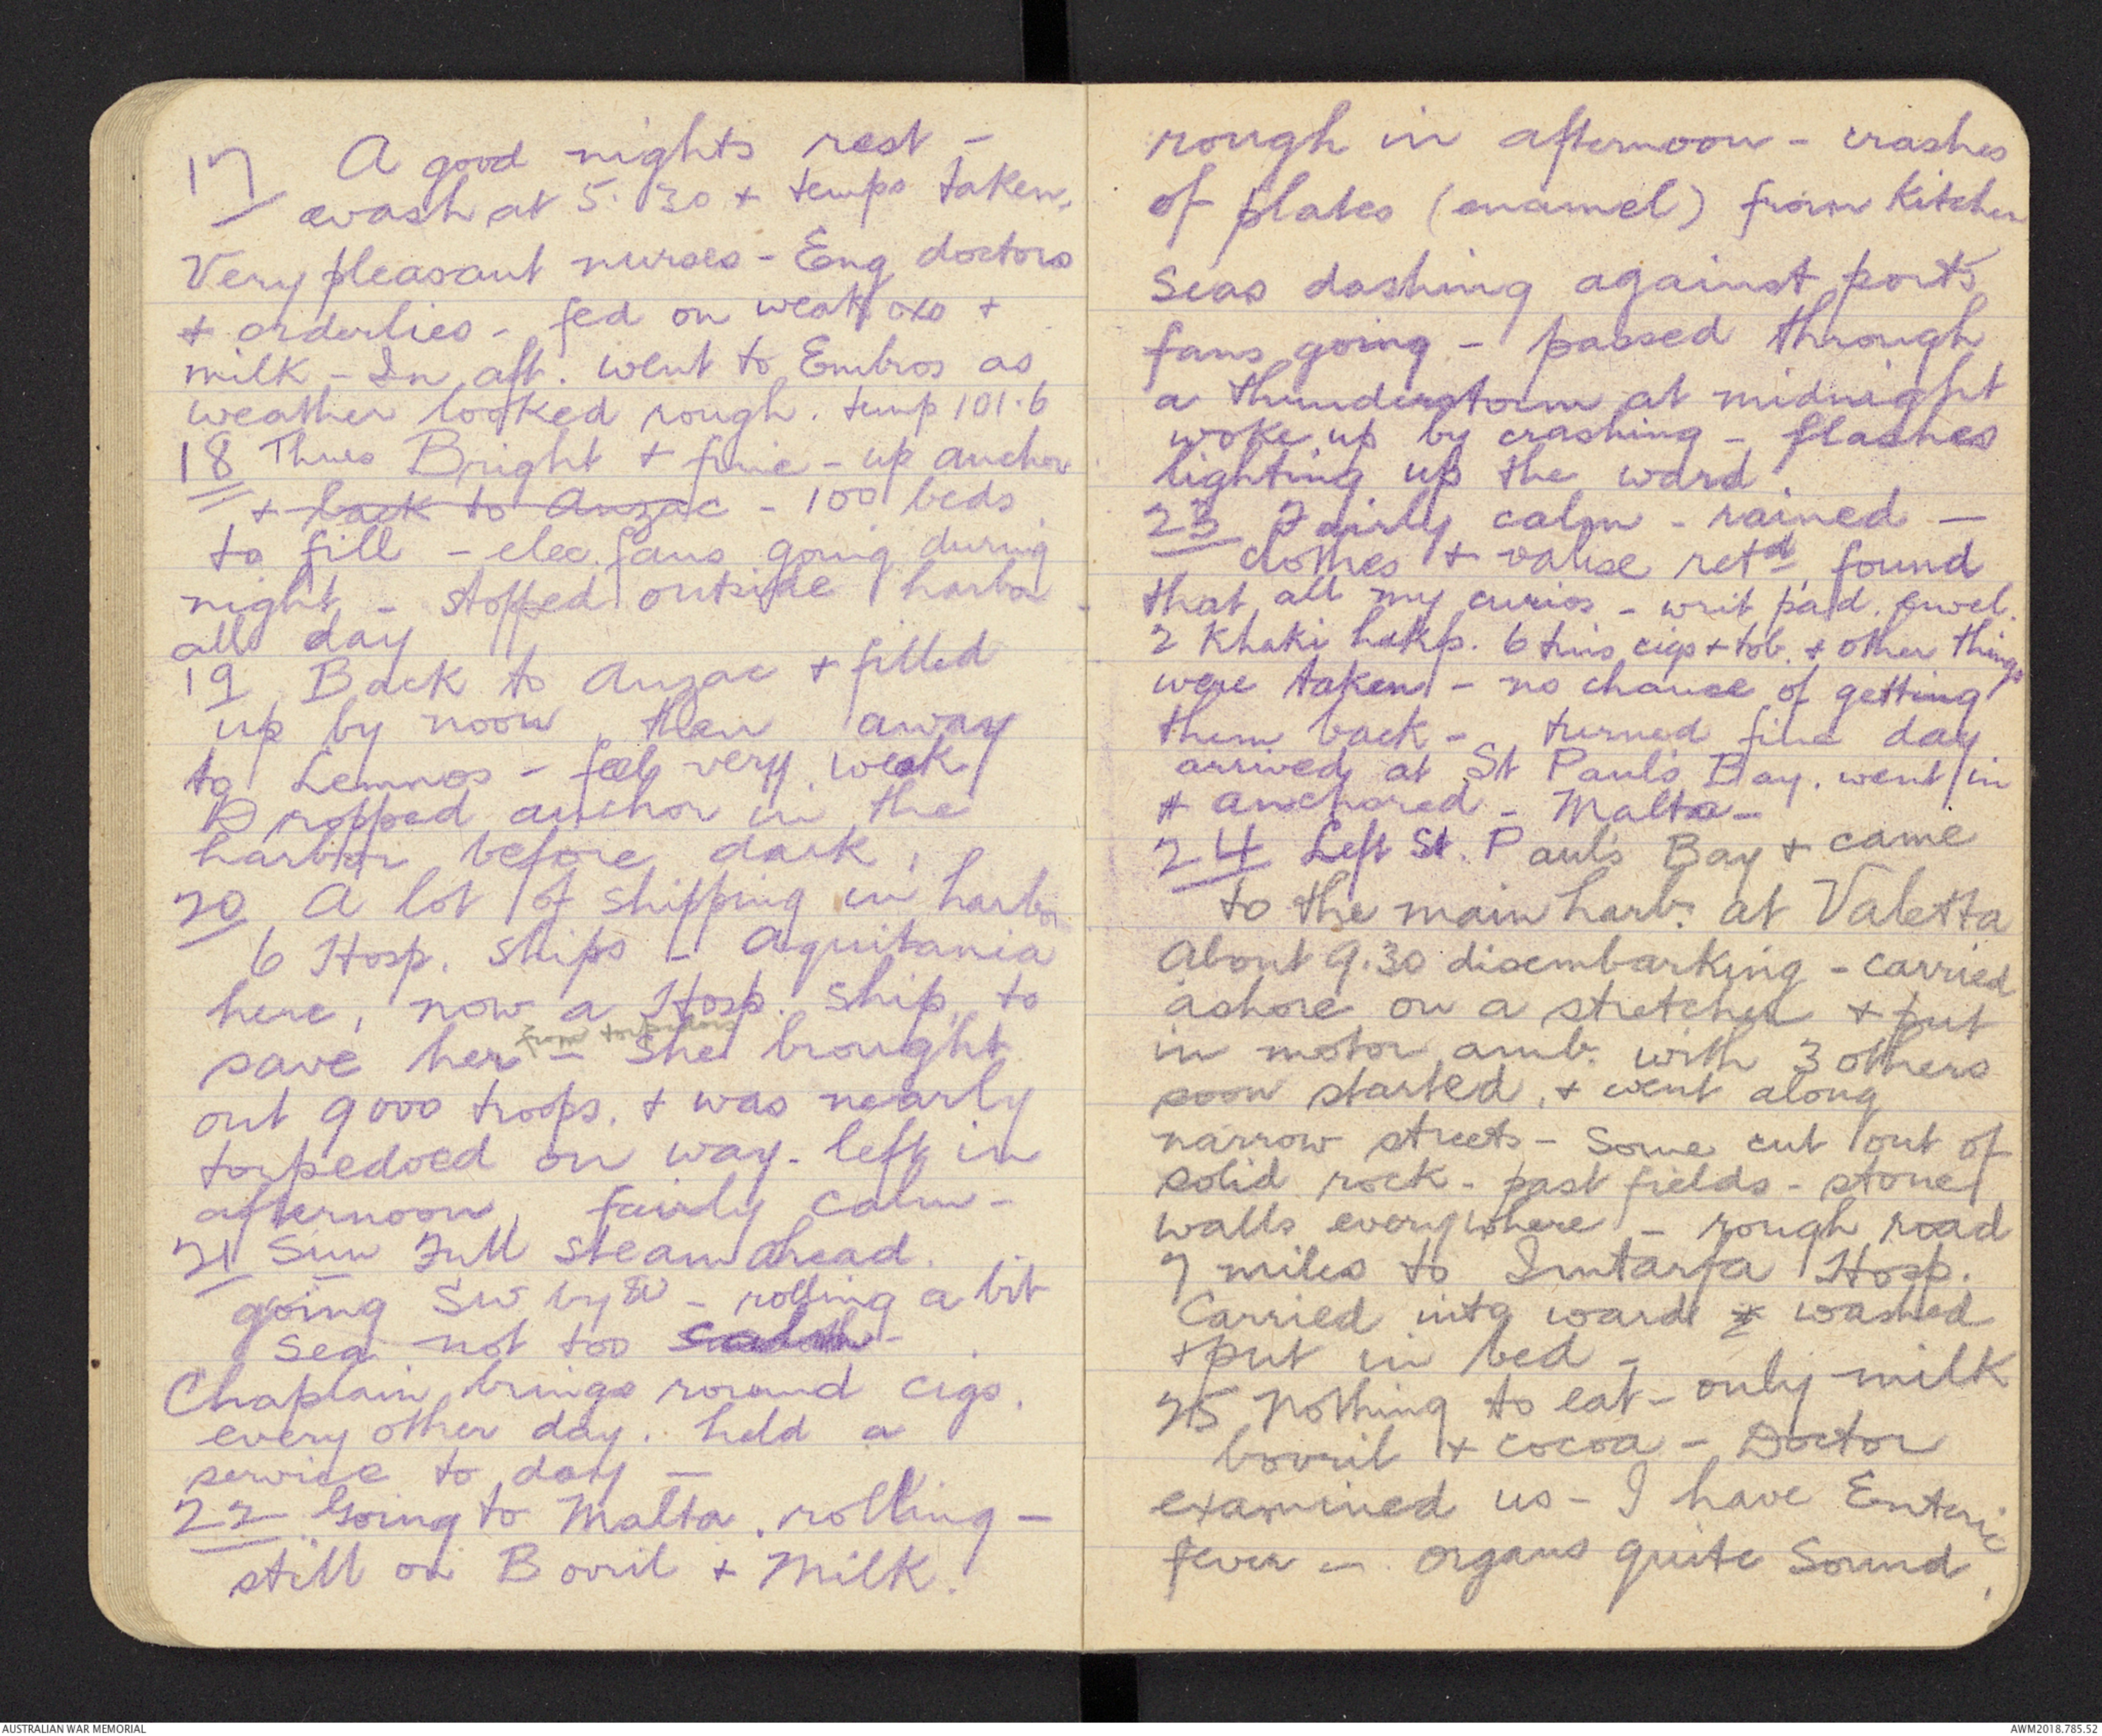 17 A good nights rest -
wash at 5.30 + temps taken,
Very pleasant nurses - Eng doctors
+ orderlies - fed on weak oxo +
milk - In aft. went to Embros as
weather looked rough. temp 101.6
18 Thurs Bright + fine - up anchor
+ back to Anzac - 100 beds
to fill - elec. fans going during
night - stopped outside harbor
all day
19 Back to Anzac + filled
up by noon then away
to Lemnos - feel very weak
Dropped anchor in the
harbor before dark,
20 A lot of shipping in harbor
6 Hosp. ships - Aquitania
here, now a Hosp. ship, to
from torpedoes
save her - She brought
out 9000 troops, + was nearly
torpedoed on way - left in
afternoon, fairly calm -
21 Sun Full steam ahead.
going SW by W - rolling a bit
sea not too
Chaplain brings round cigs.
every other day. held a
service to day -
22 Going to Malta, rolling -
still on Bovril + Milk.
rough in afternoon - crashes
of plates (enamel) from Kitchen
Seas dashing against ports
fans going - passed through
a thunderstorm at midnight
woke up by crashing - flashes
lighting up the ward.
23 Fairly calm - rained -
clothes + valise retd found
that all my curios - writ pad.
2 Khaki hdkfs. 6 tins cigs + tob. + other things
were taken - no chance of getting
them back - turned fine day
arrived at St Pauls Bay. went in
+ anchored - Malta -
24 Left St. Pauls Bay + came
to the main harb. at Valetta
About 9.30 disembarking - carried
ashore on a stretcher + put
in motor amb. with 3 others
soon started, + went along
narrow streets - Some cut out of
solid rock - past fields - stone
walls everywhere - rough road
7 miles to Imtarfa Hosp.
Carried into ward + washed
+ put in bed -
25 Nothing to eat - only milk
bovril + cocoa - Doctor
examined us - I have Enteric
fever - organs quite Sound,
AUSTRALIAN WAR MEMORIAL
AWM2018.785.52